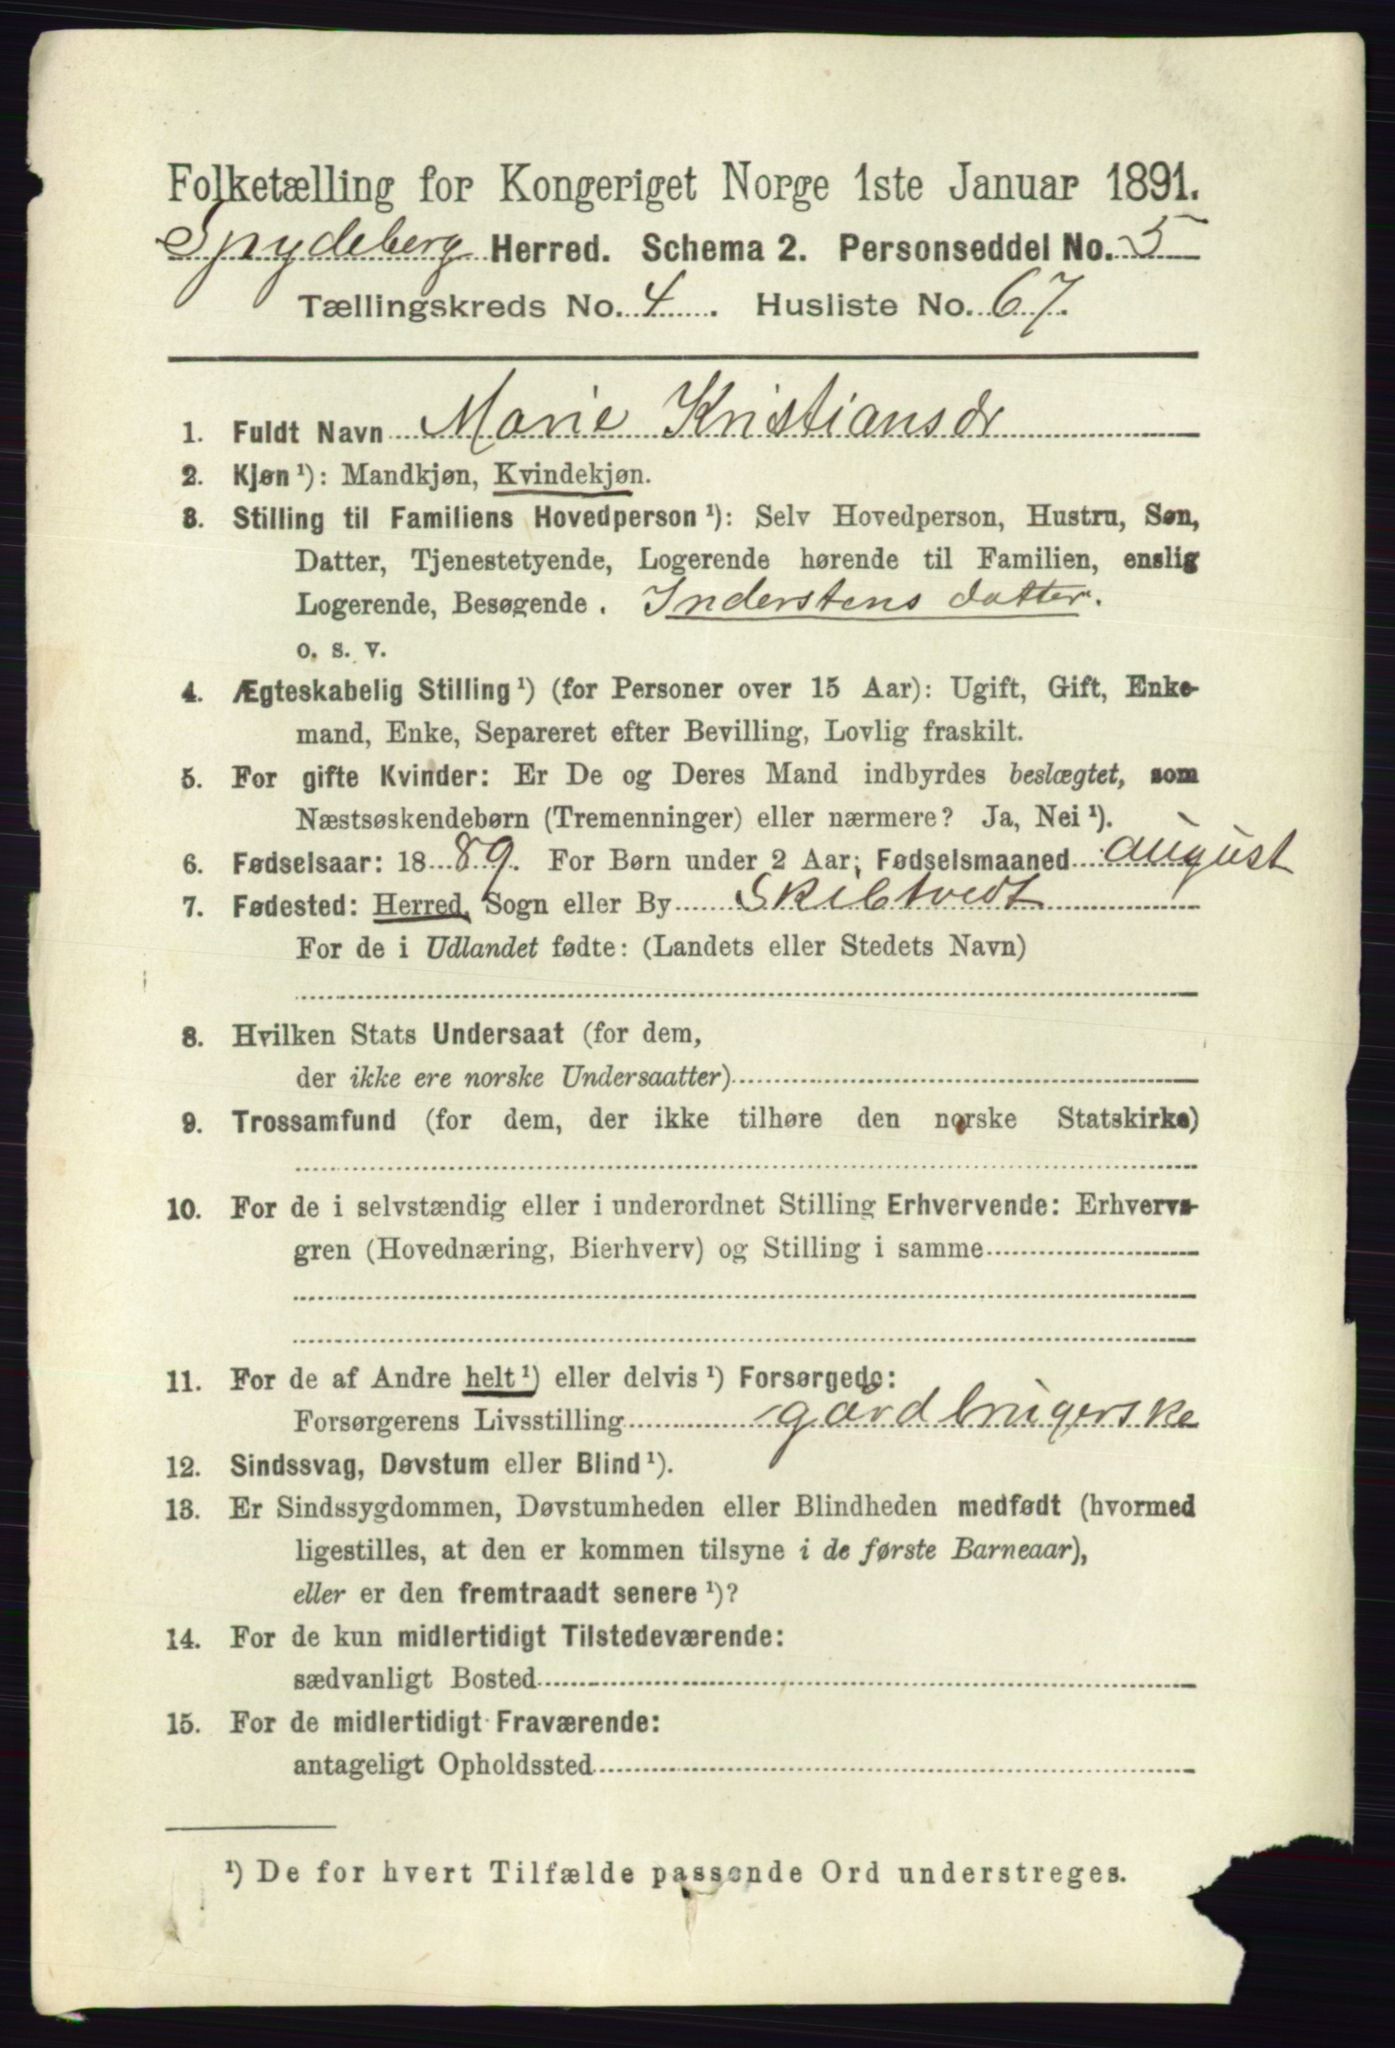 Folketælling for Kongeriget Norge 1ste Januar 1891.
Spydeberg Herred. Schema 2. Personseddel No. 5
Tællingskreds No. 4. Husliste No. 67.
1. Fuldt Navn Marie Kristiansdr
2. Kjøn ¹): Mandkjøn, Kvindekjøn.
3. Stilling til Familiens Hovedperson ¹): Selv Hovedperson, Hustru, Søn,
Datter, Tjenestetyende, Logerende hørende til Familien, enslig
Logerende, Besøgende. Inderstens datter.
o. s. v.
4. Ægteskabelig Stilling ¹) (for Personer over 15 Aar): Ugift, Gift, Enke-
mand, Enke, Separeret efter Bevilling, Lovlig fraskilt.
5. For gifte Kvinder: Er De og Deres Mand indbyrdes beslægtet, som
Næstsøskendebørn (Tremenninger) eller nærmere? Ja, Nei ¹).
6. Fødselsaar: 1889. For Børn under 2 Aar; Fødselsmaaned august
7. Fødested: Herred, Sogn eller By Skibtvedt
For de i Udlandet fødte: (Landets eller Stedets Navn)
8. Hvilken Stats Undersaat (for dem,
der ikke ere norske Undersaatter)
9. Trossamfund (for dem, der ikke tilhøre den norske Statskirke)
10. For de i selvstændig eller i underordnet Stilling Erhvervende: Erhvervs-
gren (Hovednæring, Bierhverv) og Stilling i samme
11. For de af Andre helt ¹) eller delvis ¹) Forsørgede:
Forsørgerens Livsstilling gårdbrugerske
12. Sindssvag, Døvstum eller Blind ¹).
13. Er Sindssygdommen, Døvstumheden eller Blindheden medfødt (hvormed
ligestilles, at den er kommen tilsyne i de første Barneaar),
eller er den fremtraadt senere ¹)?
14. For de kun midlertidigt Tilstedeværende:
sædvanligt Bosted
15. For de midlertidigt Fraværende:
antageligt Opholdssted
¹) De for hvert Tilfælde passende Ord understreges.